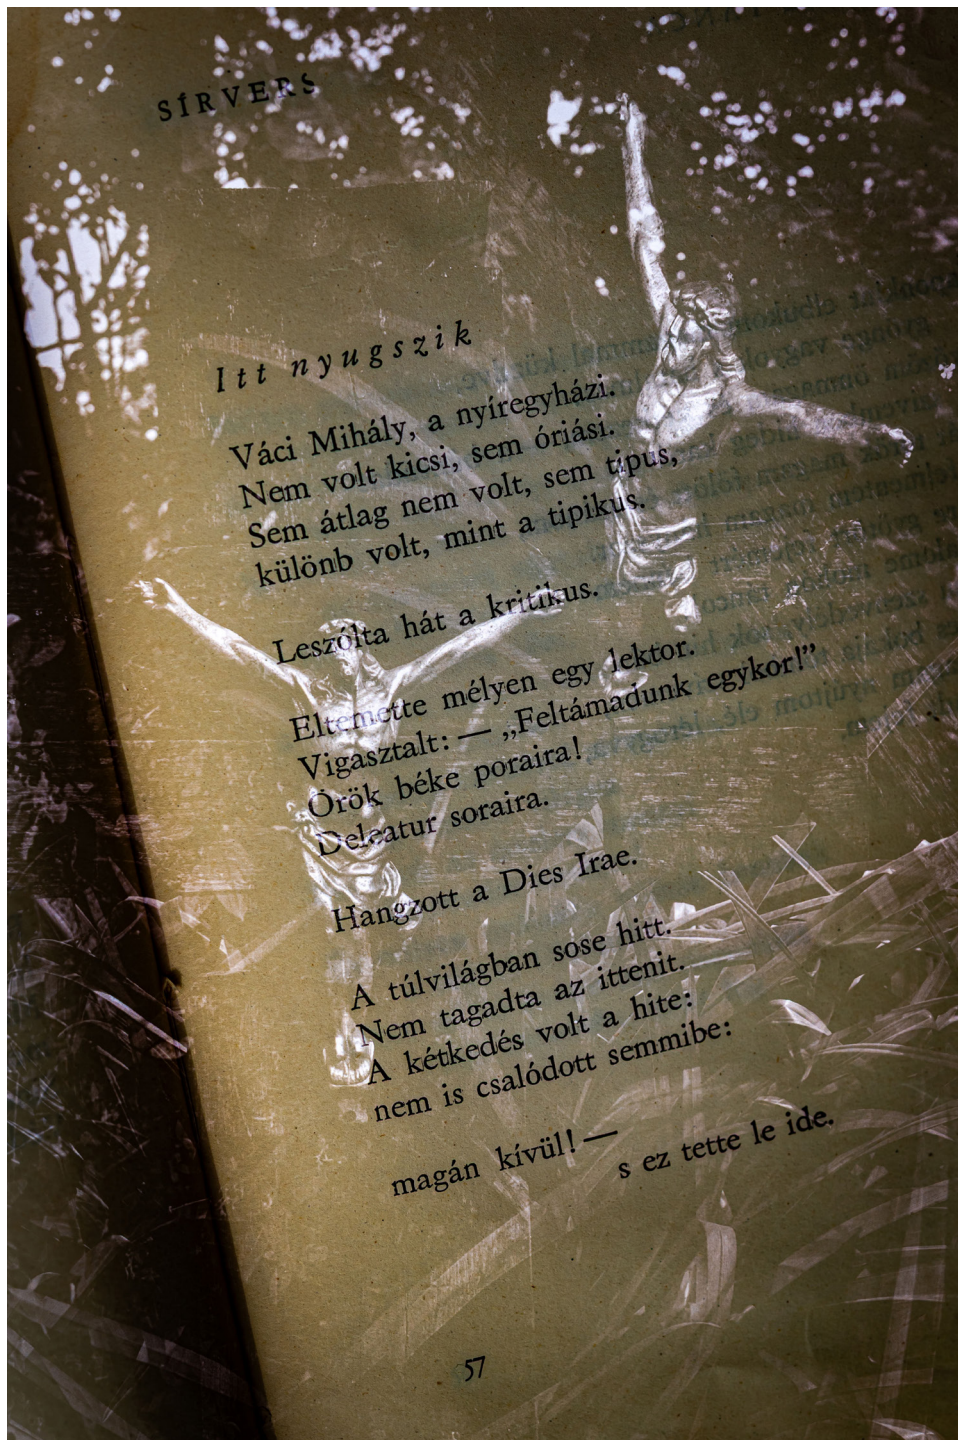 SÍRVERS
Itt nyugszik
Váci Mihály, a nyíregyházi.
Nem volt kicsi, sem óriási.
Sem átlag nem volt, sem tipus,
különb volt, mint a tipikus.
Leszólta hát a kritikus.
Eltemette mélyen egy lektor.
Vigasztalt: — „Feltámadunk egykor!”
Örök béke poraira!
Deleatur soraira.
Hangzott a Dies Irae.
A túlvilágban sose hitt.
Nem tagadta az ittenit.
A kétkedés volt a hite:
nem is csalódott semmibe:
magán kívül! —
s ez tette le ide.
57